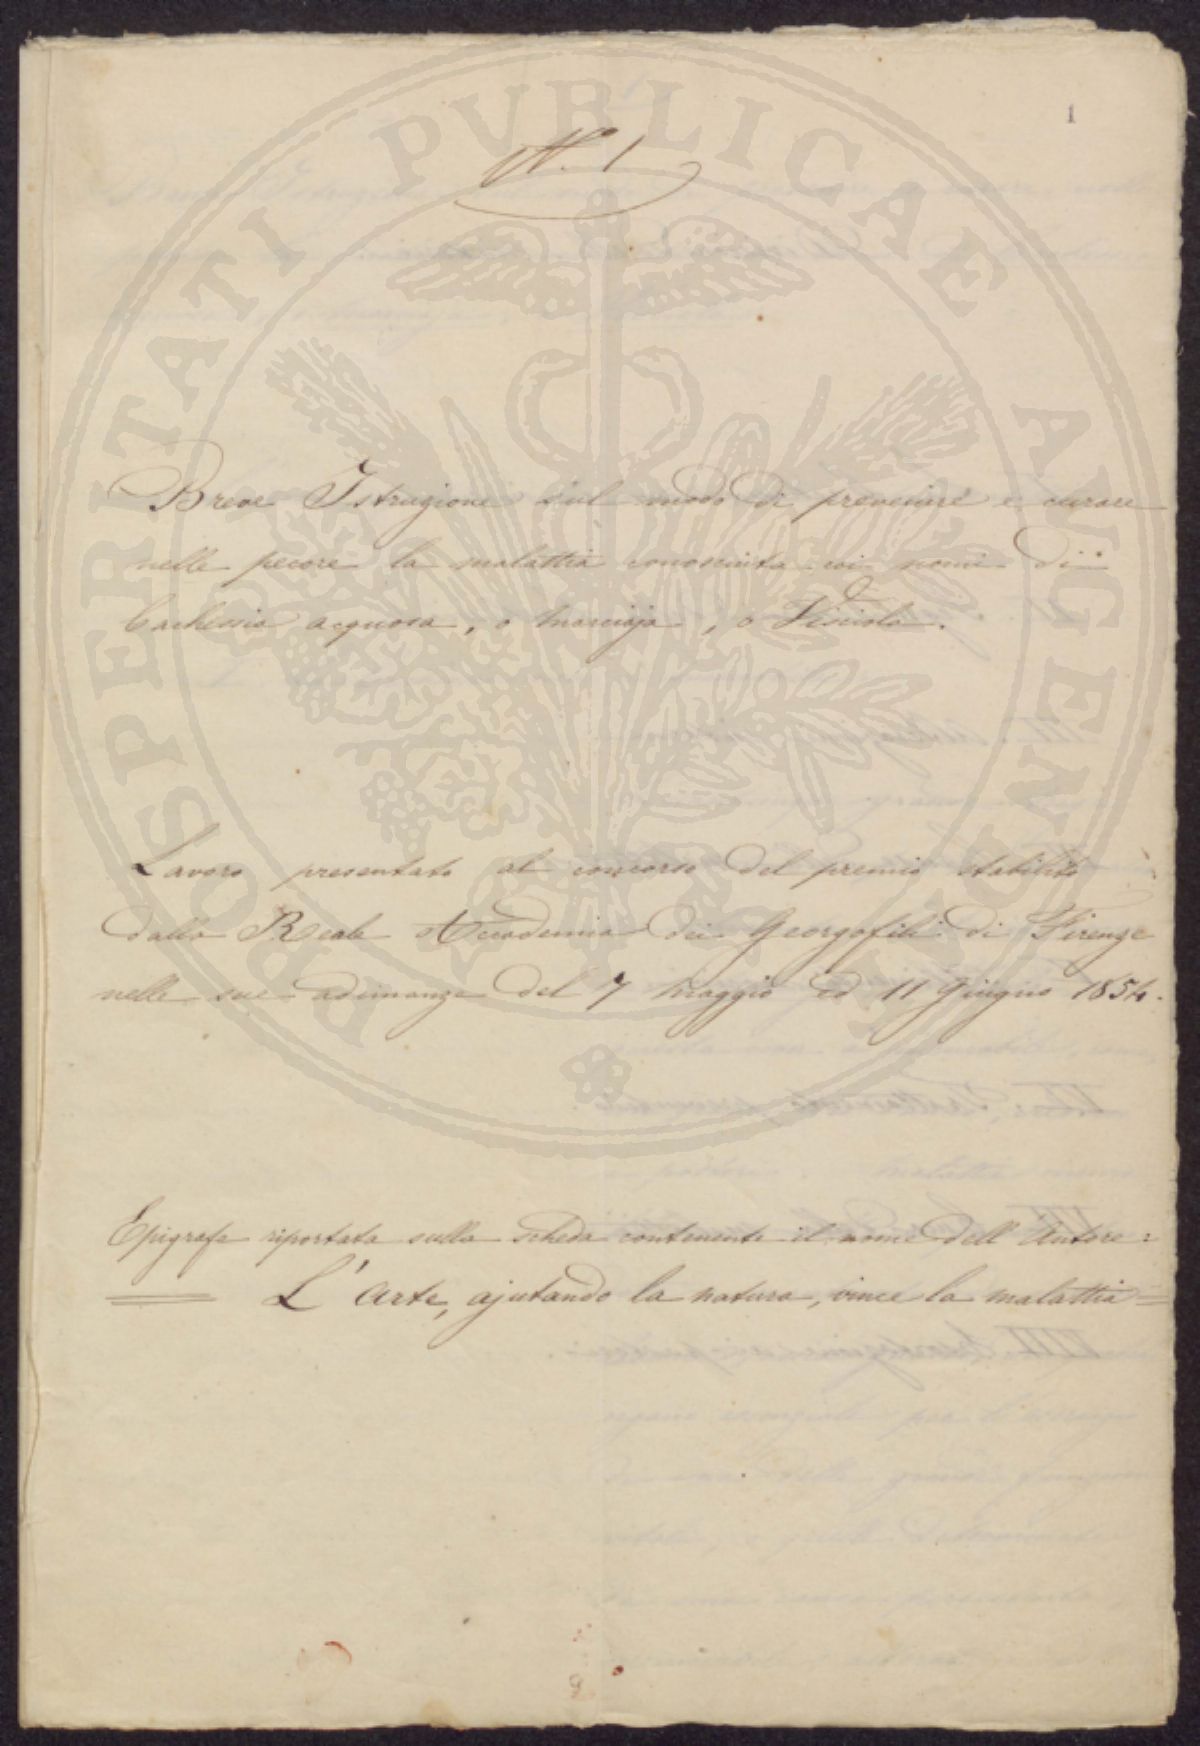 1
N. 1
PROSPERITATI PUBLICAE AUGENDAE
Breve Istruzione sul modo di prevenire e curare
nelle pecore la malattia conosciuta coi nomi di
Cachessia acquosa, o Marciaja, o Visciola.
Lavoro presentato al concorso del premio stabilito
dalla Reale Accademia dei Georgofili di Firenze
nelle sue adunanze del 7 Maggio ed 11 Giugno 1854.
Epigrafe riportata sulla scheda contenente il nome dell' Autore =
L' Arte, ajutando la natura, vince la malattia =